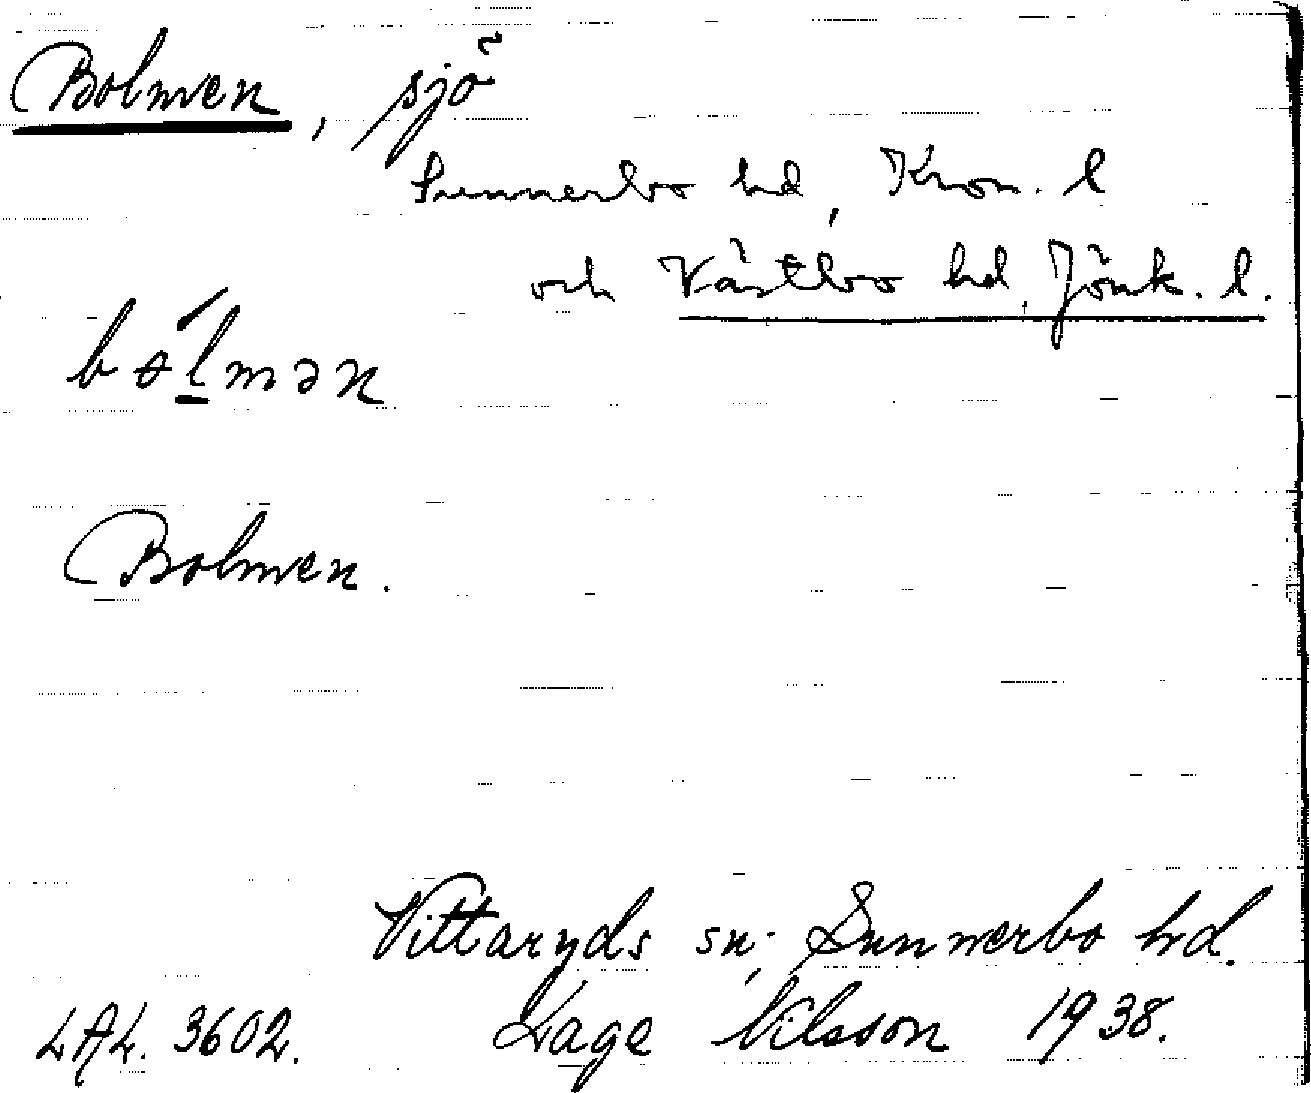 Bolmen, sjö
Sunnerbo hd, Kron. l
och Västbo hd, Jönk. l.
bólmən
Bolmen.
Vittaryds sn, Sunnerbo hd.
LAL. 3602. Lage Nilsson 1938.